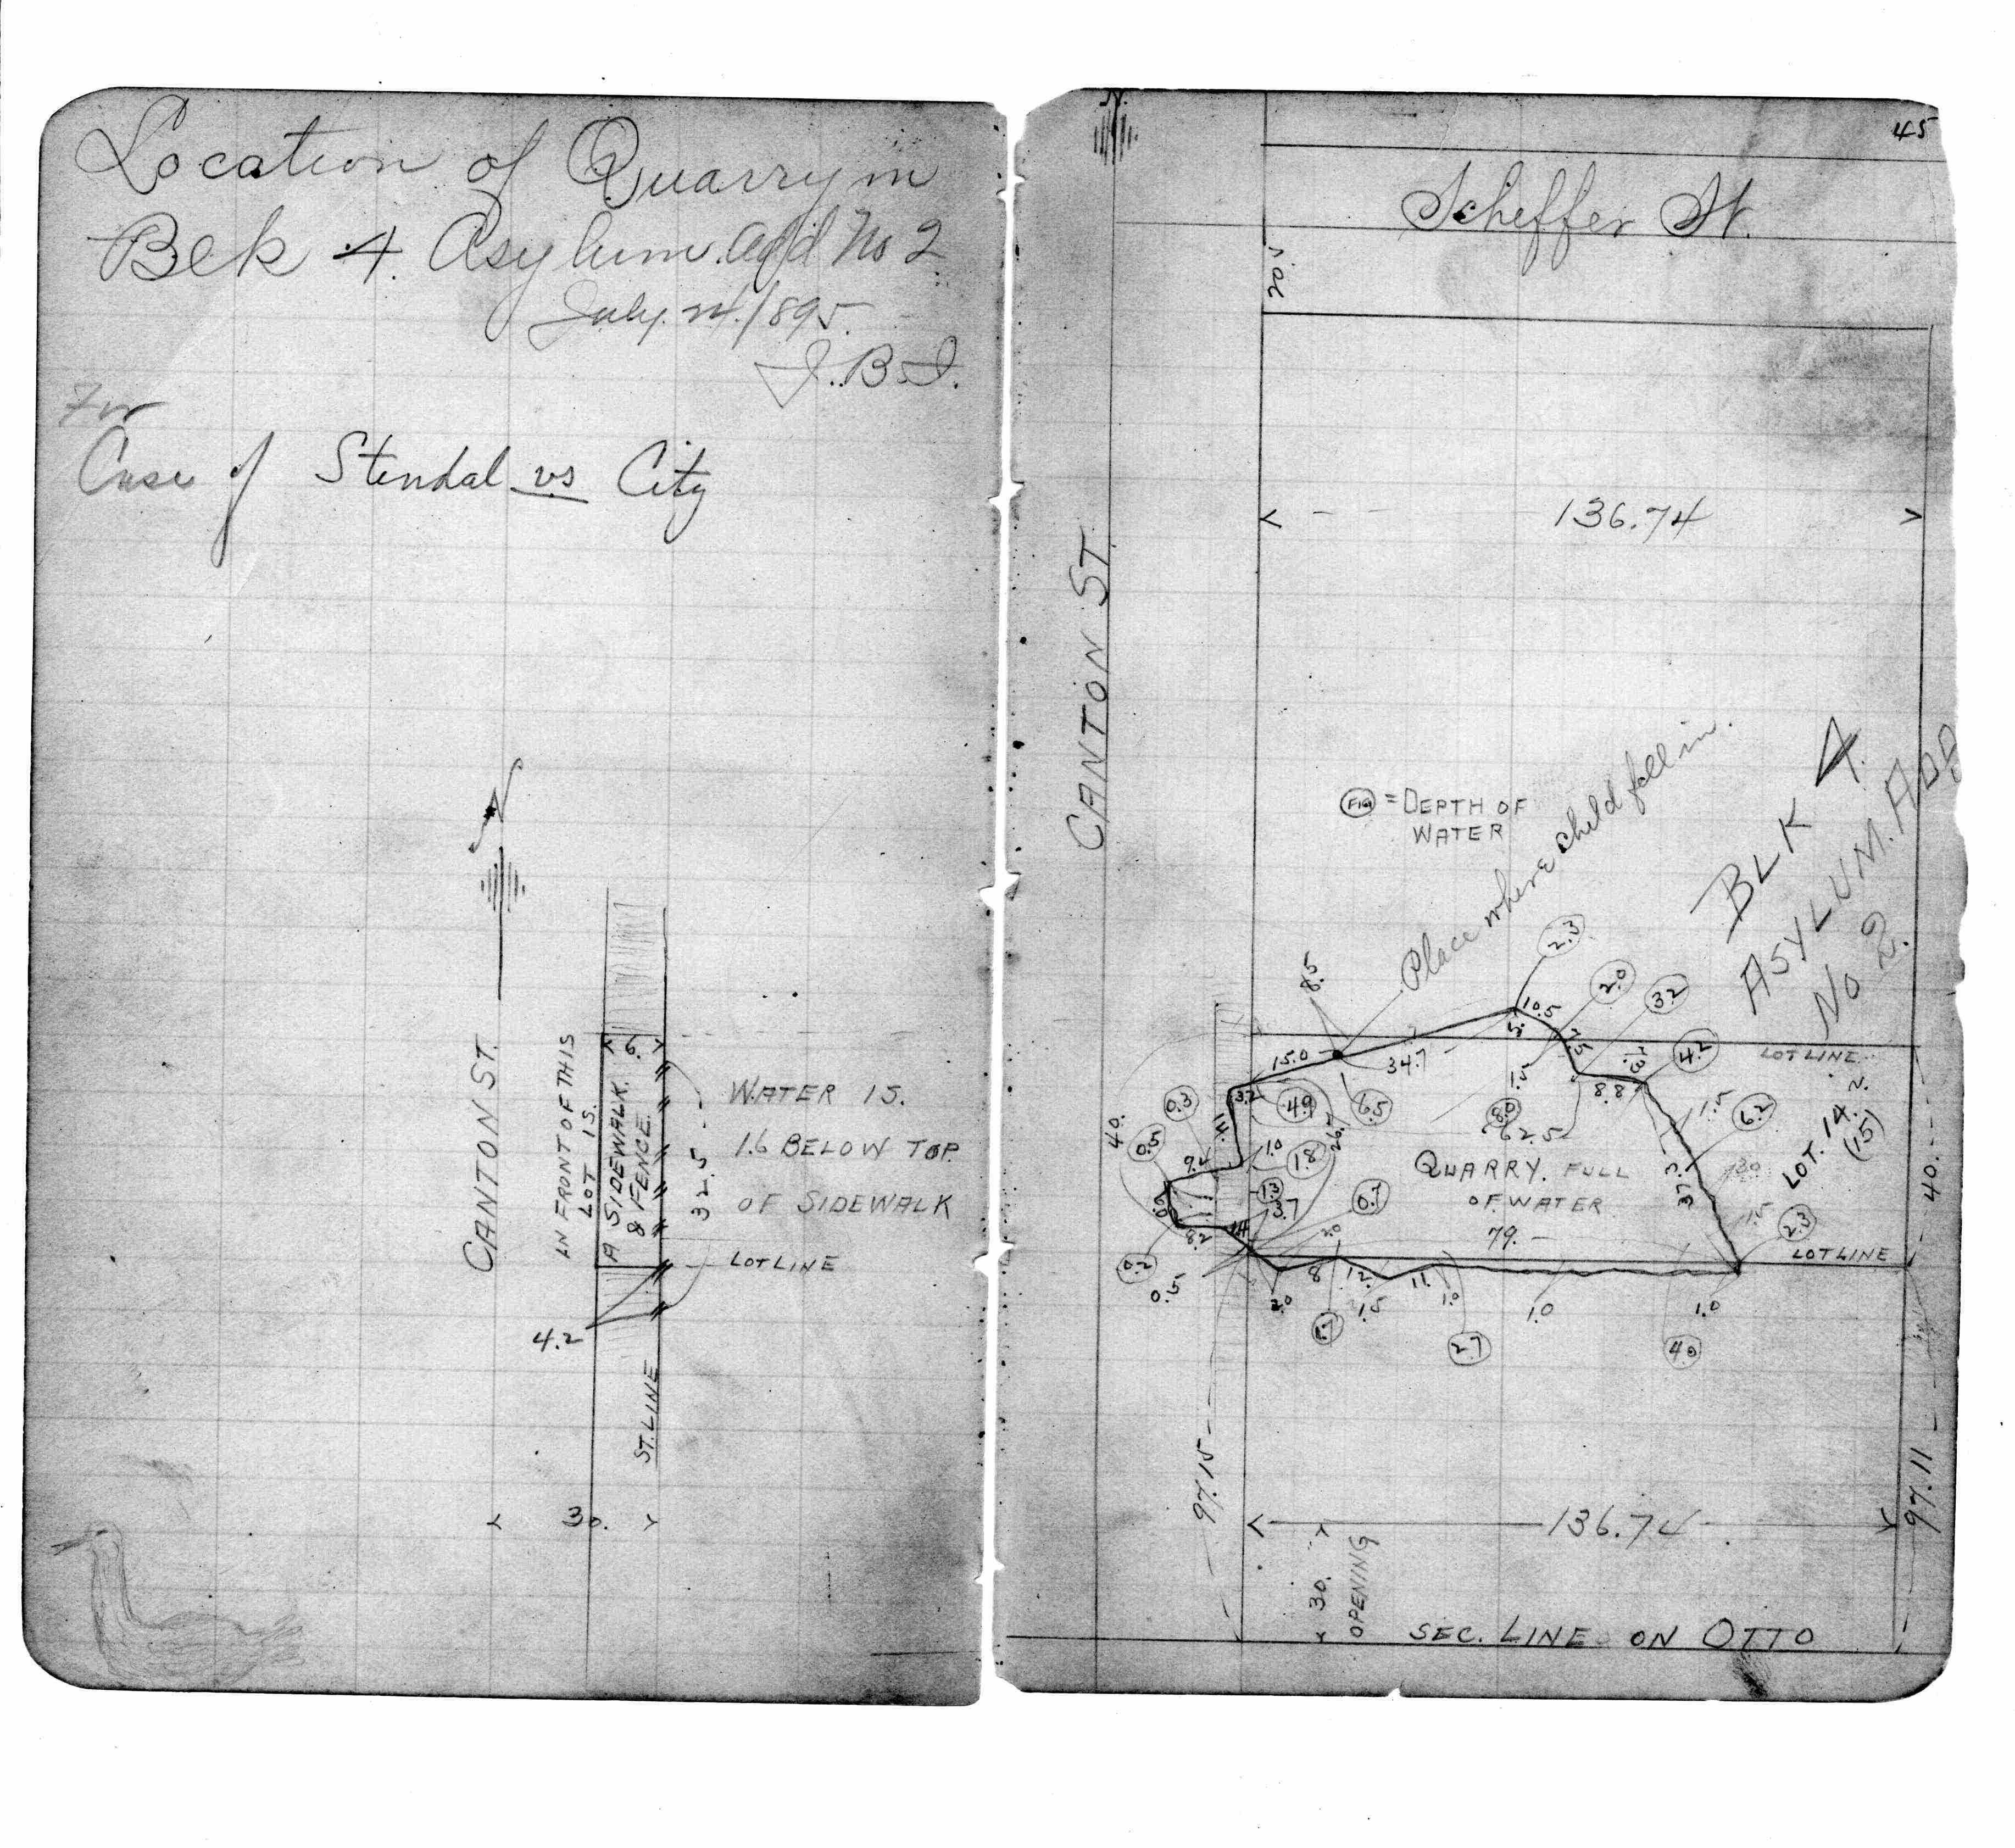 Location of Quarry in
Blk 4. Asylum. Add No 2
July. 24. 1895.
J. B. I.
For
Case of Stendal vs City
CANTON ST.
IN FRONT OF THIS
LOT IS.
A SIDEWALK.
& FENCE.
6.
32.5
WATER IS.
1.6 BELOW TOP
OF SIDEWALK
LOT LINE
4.2
ST. LINE
30.
N.
45
Scheffer St.
20.
136.74
CANTON ST.
FIG = DEPTH OF
WATER
Place where child fell in.
BLK 4.
ASYLUM. ADD
No 2.
2.3
2.0
3.2
4.2
8.5
10.5
5.
7.5
15.0
34.7
1.5
8.8
LOT LINE
3.2
4.9
6.5
8.0
62.5
1.5
6.2
LOT. 14.
(15)
40.
0.3
11.
26.7
0.5
9.4
1.0
1.8
QUARRY. FULL
OF WATER
37.3
40.
1.3
3.7
0.7
8.2
2.0
79.
1.5
2.3
LOT LINE
0.2
0.5
2.0
8
12.
1.5
11.
1.0
1.0
1.0
1.7
2.7
4.0
97.15
136.74
97.11
30.
OPENING
SEC. LINE ON OTTO